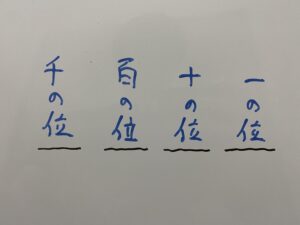 千の位
百の位
十の位
一の位